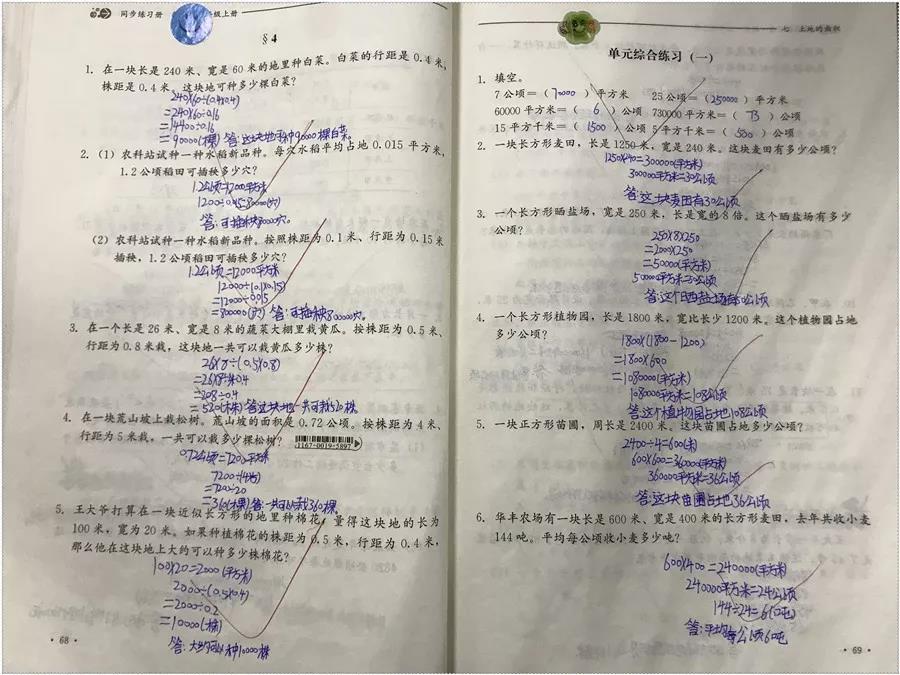 同步练习册
级上册
§4
1. 在一块长是 240 米、宽是 60 米的地里种白菜。白菜的行距是 0.4 米、
株距是 0.4 米。这块地可种多少棵白菜?
240×60÷(0.4×0.4)
=240×60÷0.16
=14400÷0.16
=90000(棵) 答:这块地可种90000棵白菜.
2. (1) 农科站试种一种水稻新品种。每穴水稻平均占地 0.015 平方米,
1.2 公顷稻田可插秧多少穴?
1.2公顷=12000平方米
1200÷0.15=80000(穴)
答:可插秧80000穴.
(2) 农科站试种一种水稻新品种。按照株距为 0.1 米、行距为 0.15 米
插秧,1.2 公顷稻田可插秧多少穴?
1.2公顷=12000平方米
12000÷(0.1×0.15)
=12000÷0.015
=800000(穴) 答:可插秧800000穴.
3. 在一个长是 26 米、宽是 8 米的蔬菜大棚里栽黄瓜。按株距为 0.5 米、
行距为 0.8 米栽,这块地一共可以栽黄瓜多少株?
26×8÷(0.5×0.8)
=26×8÷0.4
=208÷0.4
=520(株) 答:这块地一共可栽520棵.
4. 在一块荒山坡上栽松树。荒山坡的面积是 0.72 公顷。按株距为 4 米、
行距为 5 米栽,一共可以栽多少棵松树?
1167-0019-5897
0.72公顷=7200平方米
7200÷(4×5)
=7200÷20
=360(棵) 答:一共可以栽360棵.
5. 王大爷打算在一块近似长方形的地里种棉花。量得这块地的长为
100 米,宽为 20 米。如果种植棉花的株距为 0.5 米,行距为 0.4 米,
那么他在这块地上大约可以种多少株棉花?
100×20=2000(平方米)
2000÷(0.5×0.4)
=2000÷0.2
=10000(株)
答:大约可以种10000株
• 68 •
七 土地的面积
单元综合练习(一)
1. 填空。
7 公顷=(70000)平方米 25 公顷=(250000)平方米
60000 平方米=(6)公顷 730000 平方米=(73)公顷
15 平方千米=(1500)公顷 5 平方千米=(500)公顷
2. 一块长方形麦田,长是 1250 米,宽是 240 米。这块麦田有多少公顷?
1250×240=300000(平方米)
300000平方米=30公顷
答:这块麦田有30公顷
3. 一个长方形晒盐场,宽是 250 米,长是宽的 8 倍。这个晒盐场有多少
公顷?
250×8×250
=2000×250
=500000(平方米)
500000平方米=50公顷
答:这个晒盐场有50公顷
4. 一个长方形植物园,长是 1800 米,宽比长少 1200 米。这个植物园占地
多少公顷?
1800×(1800-1200)
=1800×600
=1080000(平方米)
1080000平方米=108公顷
答:这个植物园占地108公顷
5. 一块正方形苗圃,周长是 2400 米。这块苗圃占地多少公顷?
2400÷4=600(米)
600×600=360000(平方米)
360000平方米=36公顷
答:这块苗圃占地36公顷
6. 华丰农场有一块长是 600 米、宽是 400 米的长方形麦田,去年共收小麦
144 吨。平均每公顷收小麦多少吨?
600×400=240000(平方米)
240000平方米=24公顷
144÷24=6(吨)
答:平均每公顷6吨
• 69 •